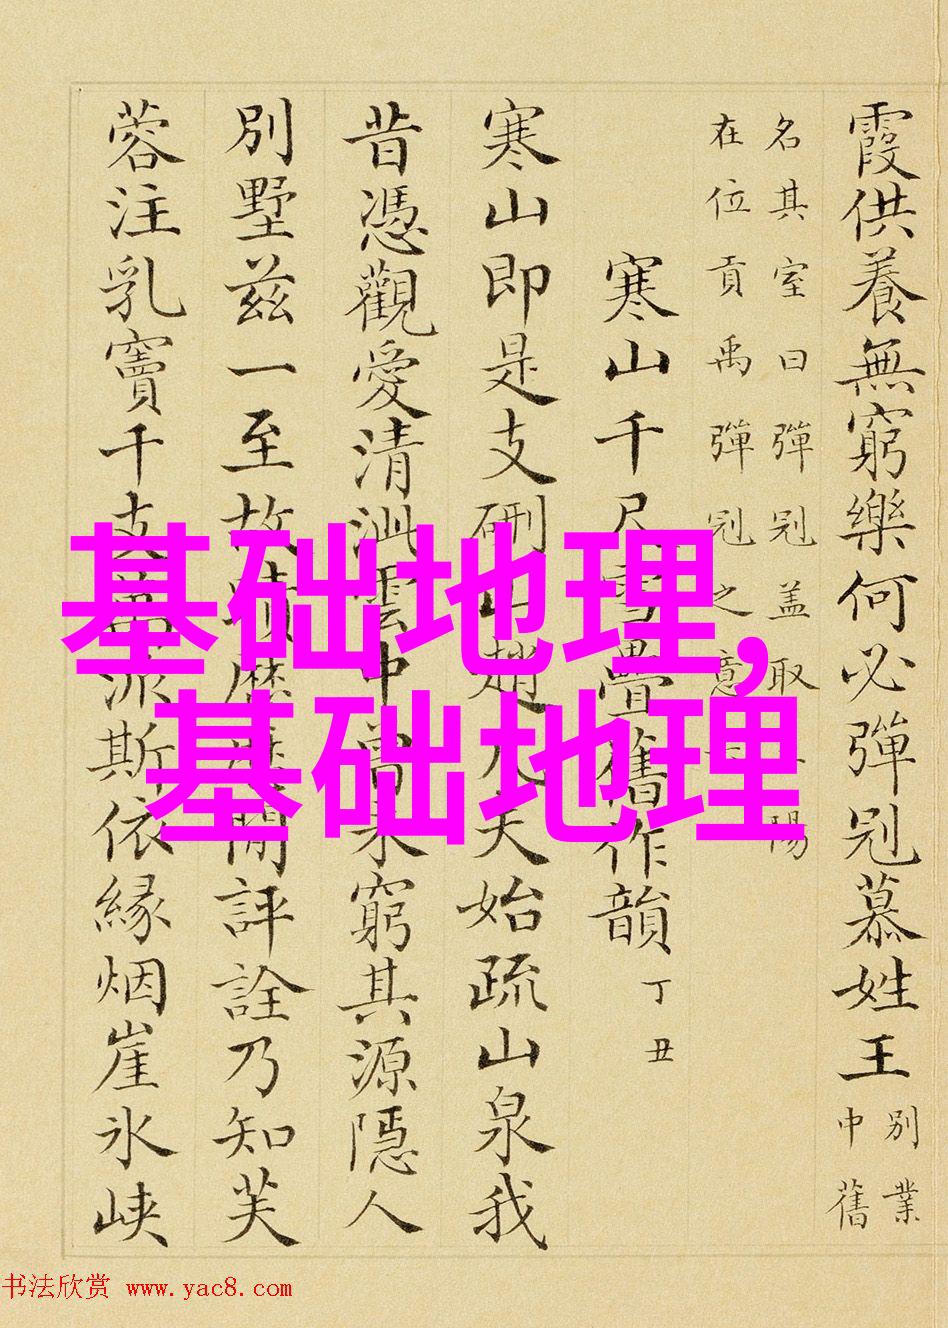 霞供養無窮樂何必彈冠慕姓王
別業
中舊
名其室曰彈冠蓋取陽
在位貢禹彈冠之意
寒山千尺雪疊舊作韻 丁丑
寒山即是支硎山趙凡夫始疏山泉我
昔憑觀愛清泚雲中曾未窮其源隱人
別墅茲一至故蹟歷歷閒評詮乃知芙
蓉注乳竇千支萬派斯依緣烟崖氷峽
基础地理,
基础地理
书法欣赏 www.yac8.com